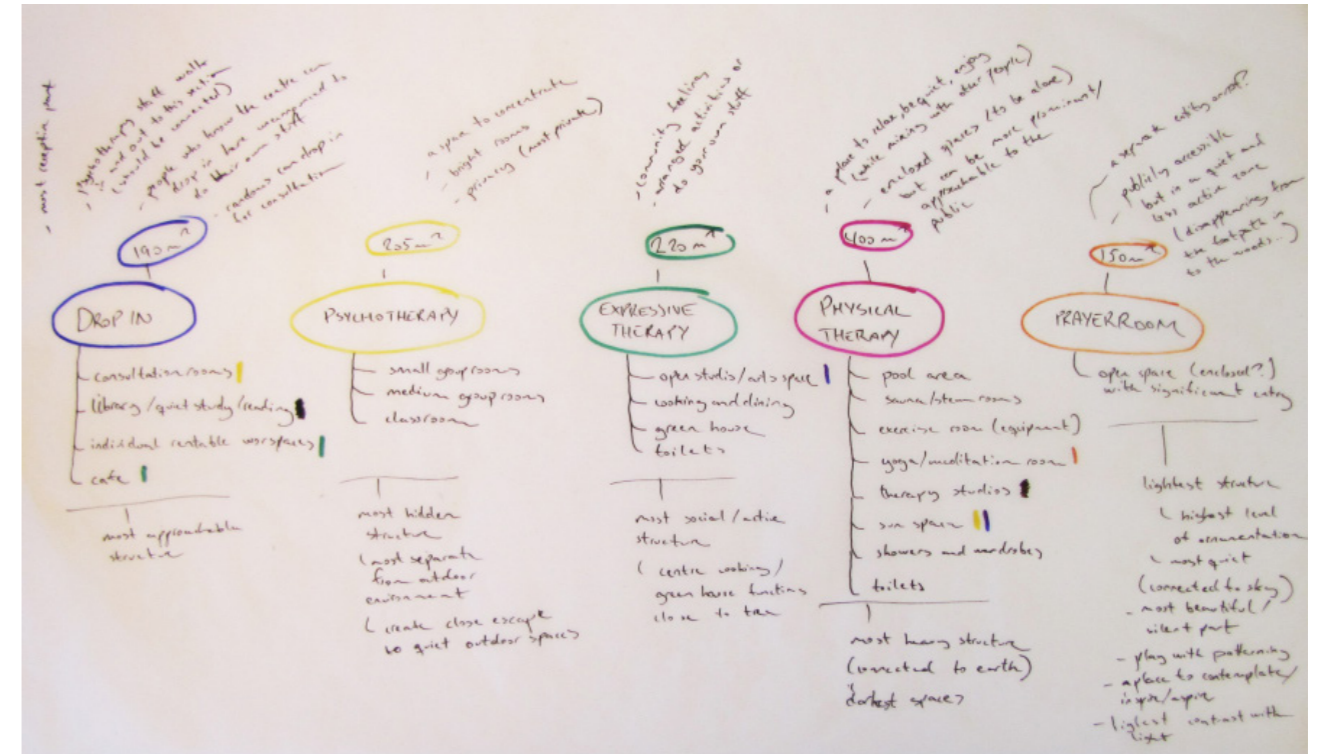 - most reception part
- psychotherapy staff walk
in and out to this section
(should be connected)
- people who know the centre can
drop in here unrecognised do
do their own stuff
- randoms can drop in
for consultation
190m²
DROP IN
consultation rooms
library/quiet study/reading
individual rentable worspaces
cafe
most approachable
structure
- a space to concentrate
- bright rooms
- privacy (most private)
205m²
PSYCHOTHERAPY
small group rooms
medium group rooms
classroom
most hidden
structure
(most separate
from outdoor
environment
create close escape
to quiet outdoor spaces
- community feeling
- arranged activities or
do your own stuff
220m²
EXPRESSIVE
THERAPY
open studio/arts space
cooking and dining
green house
toilets
most social/active
structure
centre cooking/
green house functions
close to tree
- a place to relax, be quiet, enjoy
(while mixing with other people)
- enclosed spaces (to be alone)
but can be more prominent/
approachable to the
public
400m²
PHYSICAL
THERAPY
pool area
sauna/steam rooms
exercise room (equipment)
yoga/meditation room
therapy studios
sun space
showers and wardrobes
toilets
most heavy structure
(connected to earth)
darkest spaces
a separate entity onsite?
publicly accessible
but in a quiet and
less active zone
(disappearing from
the footpath in
to the woods...)
150m²
PRAYERROOM
open space (enclosed?)
with significant entry
lightest structure
highest level
of ornamentation
most quiet
(connected to sky)
- most beautiful/
silent part
- play with patterning
- a place to contemplate/
inspire/aspire
- highest contrast with
light